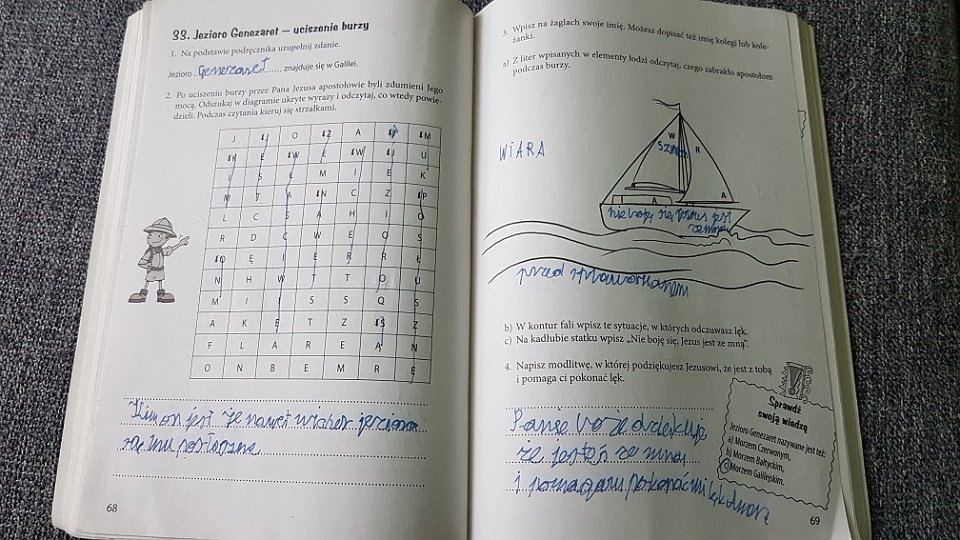 33. Jezioro Genezaret – uciszenie burzy
1. Na podstawie podręcznika uzupełnij zdanie.
Jezioro Genezaret znajduje się w Galilei.
2. Po uciszeniu burzy przez Pana Jezusa apostołowie byli zdumieni Jego
mocą. Odszukaj w diagramie ukryte wyrazy i odczytaj, co wtedy powie-
dzieli. Podczas czytania kieruj się strzałkami.
J I O Z A J M
K E W E W J U
I S Ł M I E K
M T A N C Z P
L C S A H I O
R D C W E O S
O E I E R R Ł
N H W T T O U
M I I S S Q S
A K E T Z S Z
F L A R E A N
O N B E M R E
Kim on jest że nawet wicher jezioro
są mu posłuszne
68
3. Wpisz na żaglach swoje imię. Możesz dopisać też imię kolegi lub kole-
żanki.
a) Z liter wpisanych w elementy łodzi odczytaj, czego zabrakło apostołom
podczas burzy.
WIARA
W
R
A
A
nie boję się Jezus jest
ze mną
przed
b) W kontur fali wpisz te sytuacje, w których odczuwasz lęk.
c) Na kadłubie statku wpisz „Nie boję się, Jezus jest ze mną”.
4. Napisz modlitwę, w której podziękujesz Jezusowi, że jest z tobą
i pomaga ci pokonać lęk.
Panie boże dziękuję
że jesteś ze mną
i pokonać mi lęk
Sprawdź
swoją wiedzę
Jezioro Genezaret nazywane jest też:
a) Morzem Czerwonym,
b) Morzem Bałtyckim,
c) Morzem Galilejskim.
69